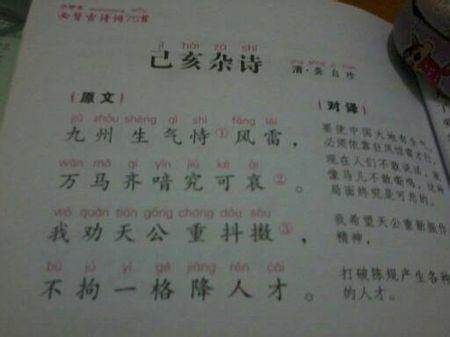 小学生
必背古诗词75首
jǐ hài zá shī
己亥杂诗
清·龚自珍
原文
jiǔ zhōu shēng qì shì fēng léi
九州生气恃①风雷，
wàn mǎ qí yīn jiū kě āi
万马齐喑究可哀②。
wǒ quàn tiān gōng chóng dǒu sǒu
我劝天公重抖擞③，
bù jū yì gé jiàng rén cái
不拘一格降人才。
对译
要使中国大地有生气，
必须依靠狂风惊雷才行，
现在人们不敢说话，就
像马儿不敢嘶鸣，这种
局面终究是可悲的。
我希望天公重新振作
精神，
打破陈规产生各种
的人才。